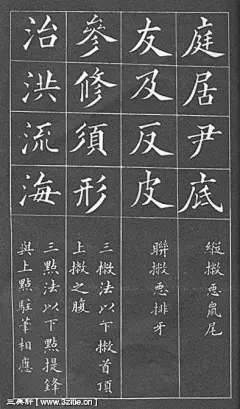 庭居尹底
縱撇惡鼠尾
友及反皮
聯撇惡排牙
參修須形
三撇法以下撇首頂
上撇之腹
治洪流海
三點法以下點提鋒
與上點駐筆相應
三典軒 [www.3zitie.cn]